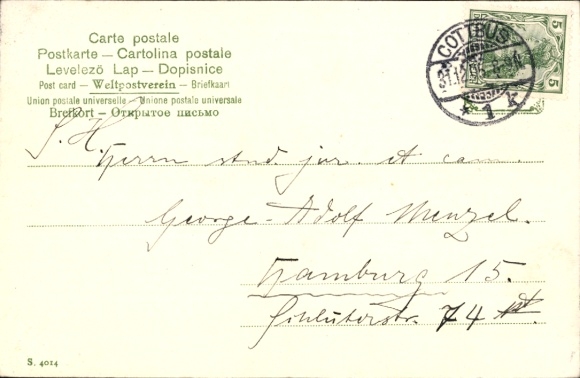 Carte postale
Postkarte — Cartolina postale
Levelező Lap — Dopisnice
Post card — Weltpostverein — Briefkaart
Union postale universelle — Unione postale universale
Brefkort — Открытое письмо
COTTBUS
* 1 k
5 5
S. H.
Herrn stud jur. et cam.
George-Adolf Menzel.
Hamburg 15.
Schlüterstr. 74
S. 4014